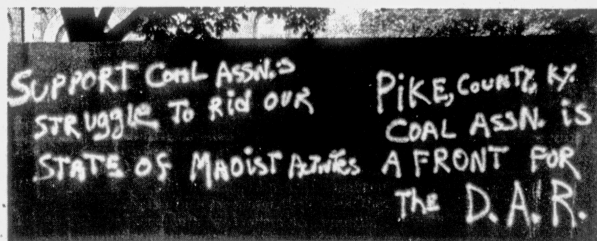 SUPPORT COAL ASSN.S
STRUggLE To Rid OUR
STATE OF MAOIST
PiKE, COUNTY, KY.
COAL ASSN. iS
A FRONT FOR
The D.A.R.